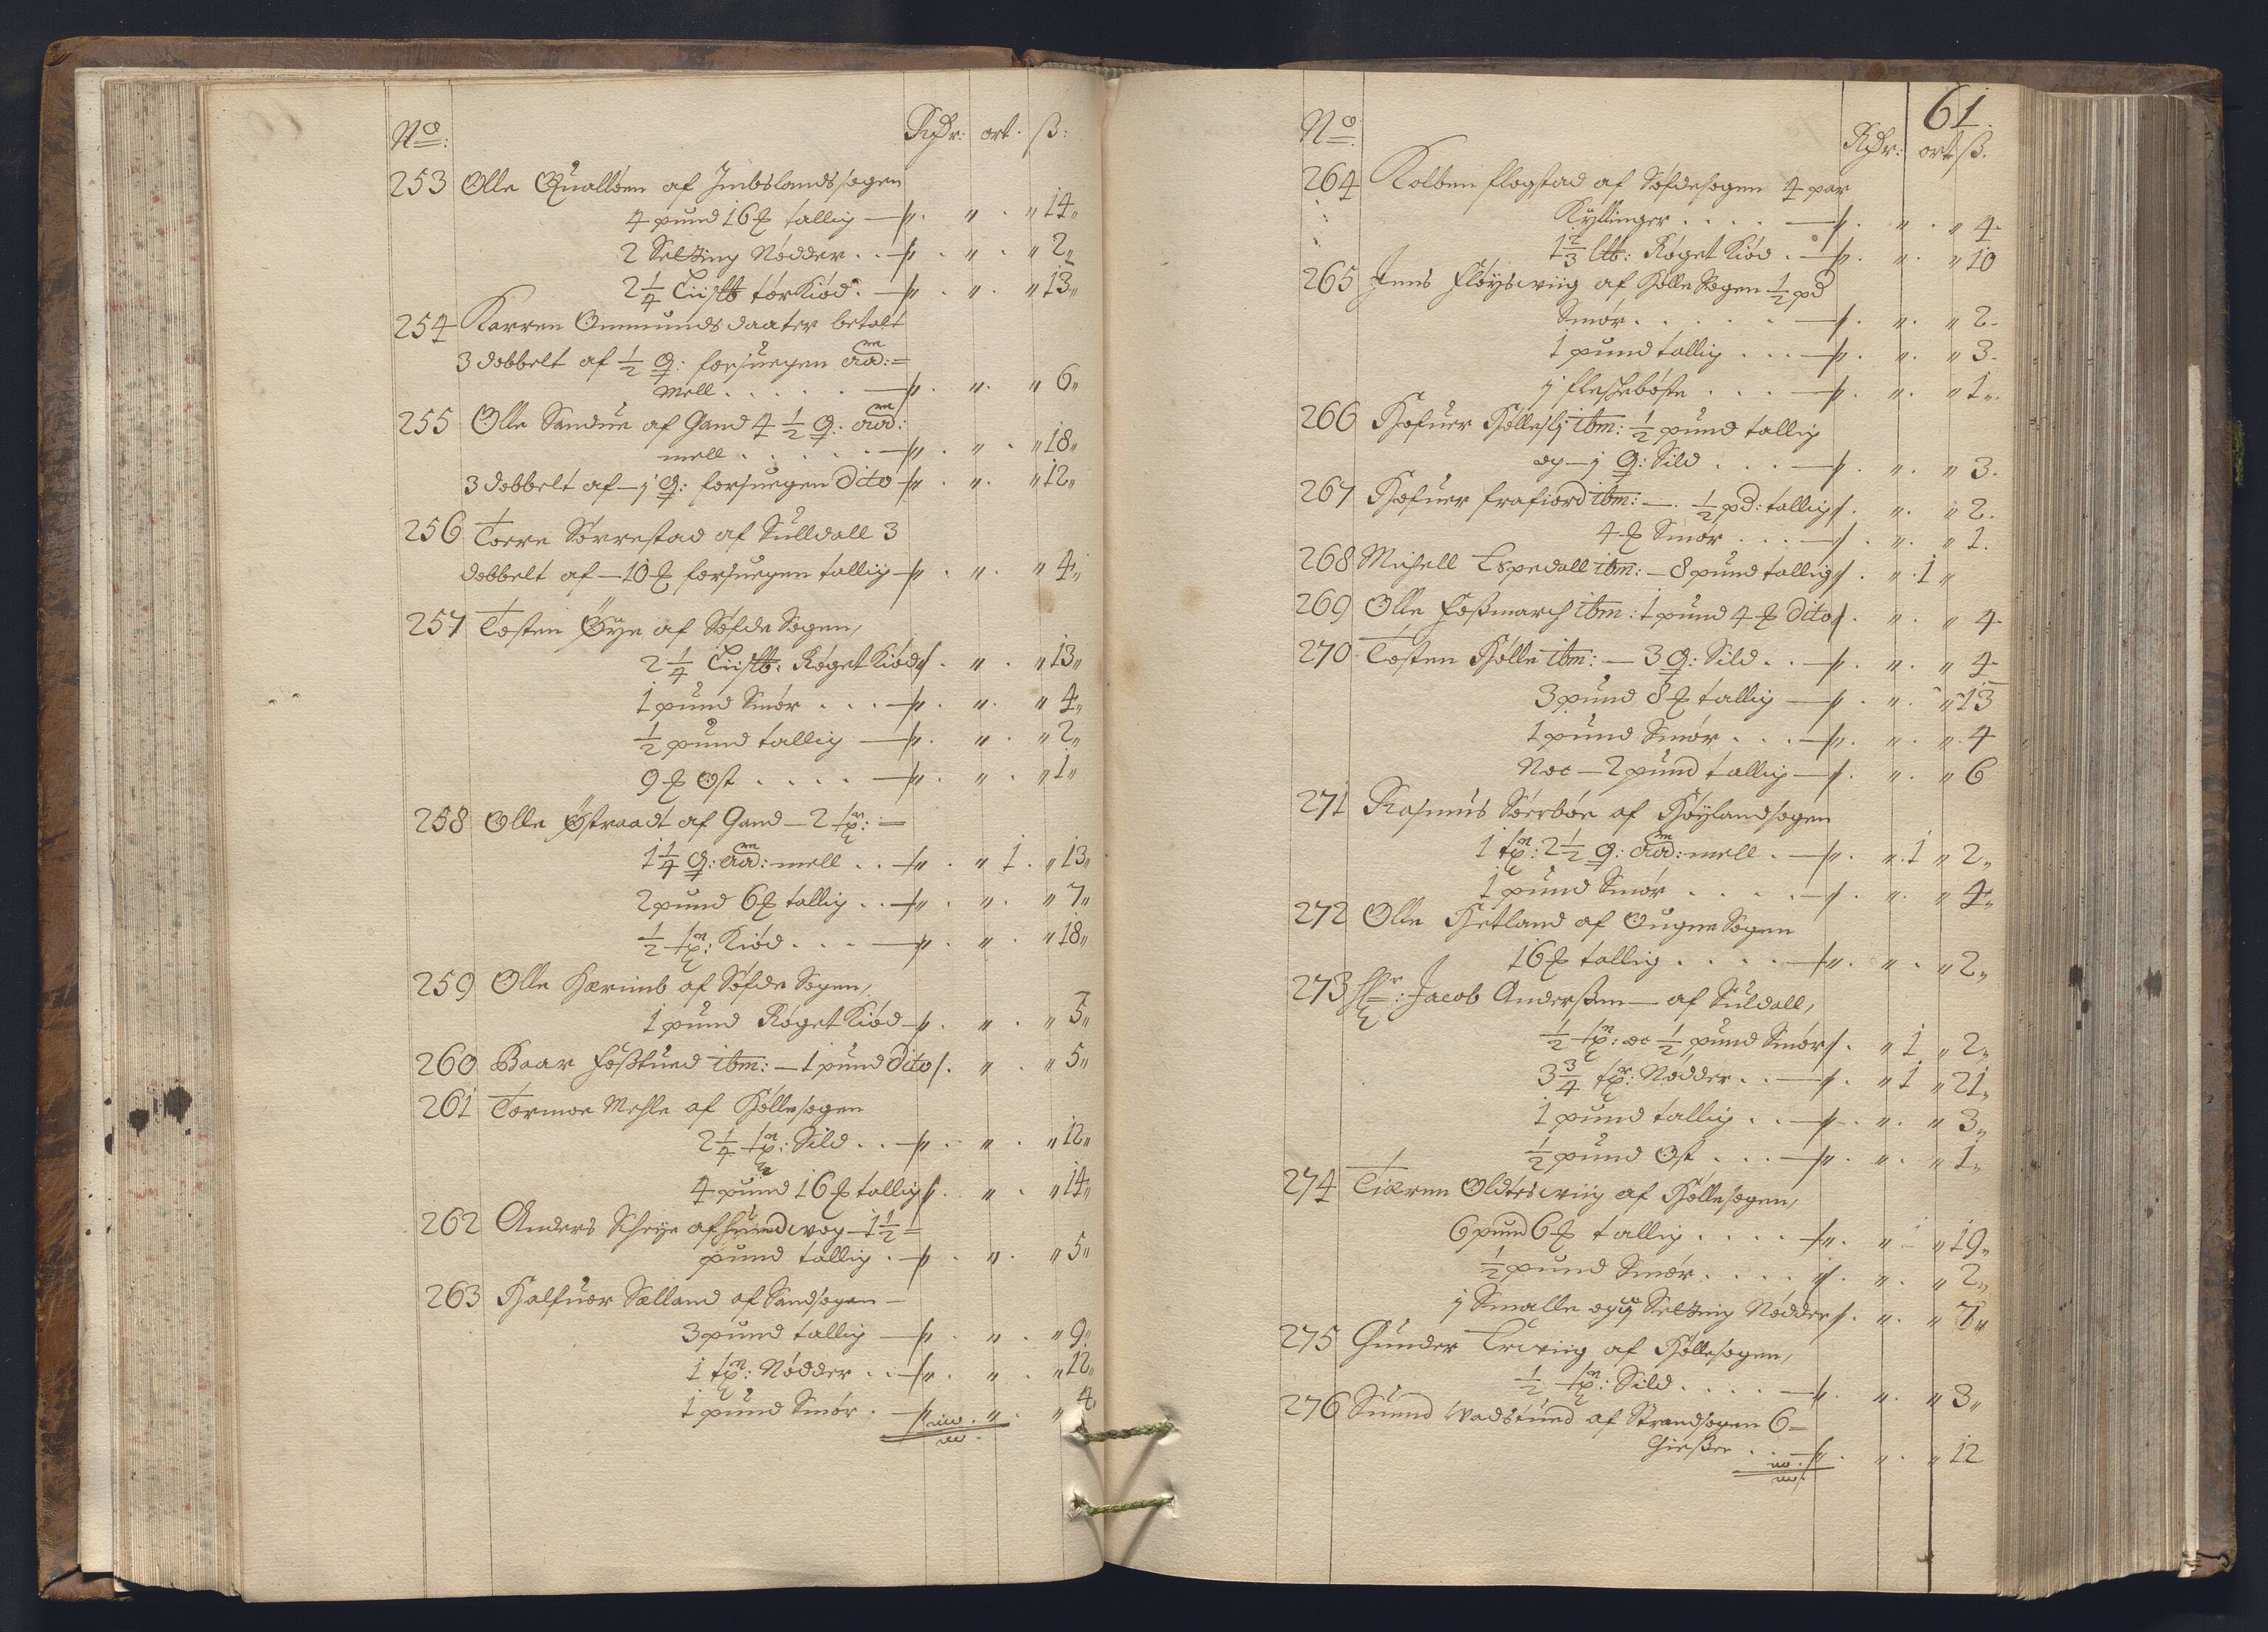 No: Rdr: ort. ß:
253 Olle Qualløen af Jmbslandssogen
4 pund 16 ℔ tallig — „ „ „ 14„
2 Setting Nødder . . — „ „ „ 2„
2 1/4 Liis℔ tørKiød. — „ „ „ 13„
254 Karren Ommunds daater betalt
3 dobbelt af 1/2 q: forsuegen aad:=
mell . . . . . — „ „ „ 6„
255 Olle Sandue af Gand 4 1/2 q: aad:
mell . . . . . — „ „ „ 18„
3 dobbelt af — j q: forsuegen dito — „ „ „ 12„
256 Toere Sørrestad af Sulldall 3
dobbelt af — 10 ℔ forsuegen tallig — „ „ „ 4„
257 Tosten Øye af Søfde Sogen,
2 1/4 Liis℔: Røget Kiød „ „ „ 13„
1 pund Smør . . . — „ „ „ 4„
1/2 pund tallig — „ „ „ 2„
9 ℔ Ost . . . . — „ „ „ 1„
258 Olle Østraadt af Gand — 2 tp: —
1 1/4 q: aad: mell . . — „ „ 1 „ 13„
2 pund 6 ℔ tallig . . — „ „ „ 7„
1/2 tp: Kiød . . . — „ „ „ 18„
259 Olle Hærimb af Søfde Sogen,
1 pund Røget Kiød — „ „ „ 5„
260 Baar Foßtued ibm: — 1 pund dito „ „ „ 5„
261 Tormoe Mehle af Høllesogen
2 1/4 tp: Sild . . — „ „ „ 12„
4 pund 16 ℔ tallig „ „ „ 14„
262 Anders Scheye af Hundwog — 1 1/2 =
pund tallig . — „ „ „ 5„
263 Halfuor Sælland af Sandsogen —
3 pund tallig — „ „ „ 9„
1 tp: Nødder . . — „ „ „ 12„
1 pund Smør . — „ „ „ 4„
61.
No Rdr: ort ß.
264 Kolben flogstad af Søfdesogen 4 par
Kyllinger . . . . — „ „ „ 4
1 2/3 l℔: Røget Kiød . — „ „ „ 10
265 Jens Fløyswiig af Hølle Sogen 1/2 pd
Smør . . . . . — „ „ „ 2
1 pund tallig . . . — „ „ „ 3
j fleschebøste . . . — „ „ „ 1„
266 Hofuer Høllesli ibm: 1/2 pund tallig
og — j q: Sild . . . — „ „ „ 3
267 Hofuer frafiord ibm: — 1/2 pd: tallig „ „ „ 2
4 ℔ Smør . . . — „ „ „ 1
268 Michell Espedall ibm: — 8 pund tallig „ „ 1 „
269 Olle Foßmarch ibm: 1 pund 4 ℔ dito „ „ „ 4
270 Tosten Hølle ibm: — 3 q: Sild . . — „ „ „ 4
3 pund 8 ℔ tallig — „ „ „ 13
1 pund Smør . . . — „ „ „ 4
Noe — 2 pund tallig — „ „ „ 6
271 Rasmus Søerbøe af Høylandsogen
1 tp: 2 1/2 q: aad: mell . — „ „ 1 „ 2„
1 pund Smør . . . . — „ „ „ 4„
272 Olle Hetland af Ougne Sogen
16 ℔ tallig . . . . — „ „ „ 2„
273 Hr: Jacob Anderßen — af Suldall,
1/2 tp: oc 1/2 pund Smør „ „ 1 „ 2„
3 3/4 tp: Nødder . . — „ „ 1 „ 21„
1 pund tallig . . — „ „ „ 3„
1/2 pund Ost . . . — „ „ „ 1„
274 Tiæren Oldteswiig af Høllesogen,
6 pund 6 ℔ tallig . . . . — „ „ „ 19„
1/2 pund Smør . . . . „ „ „ 2„
j Smalle og Setting Nødder „ „ „ 7„
275 Gunder Erewiig af Høllesogen,
1/2 tp: Sild . . . . — „ „ „ 3„
276 Suend Wadstued af Strandsogen 6 =
Gießer . . — „ „ „ 12